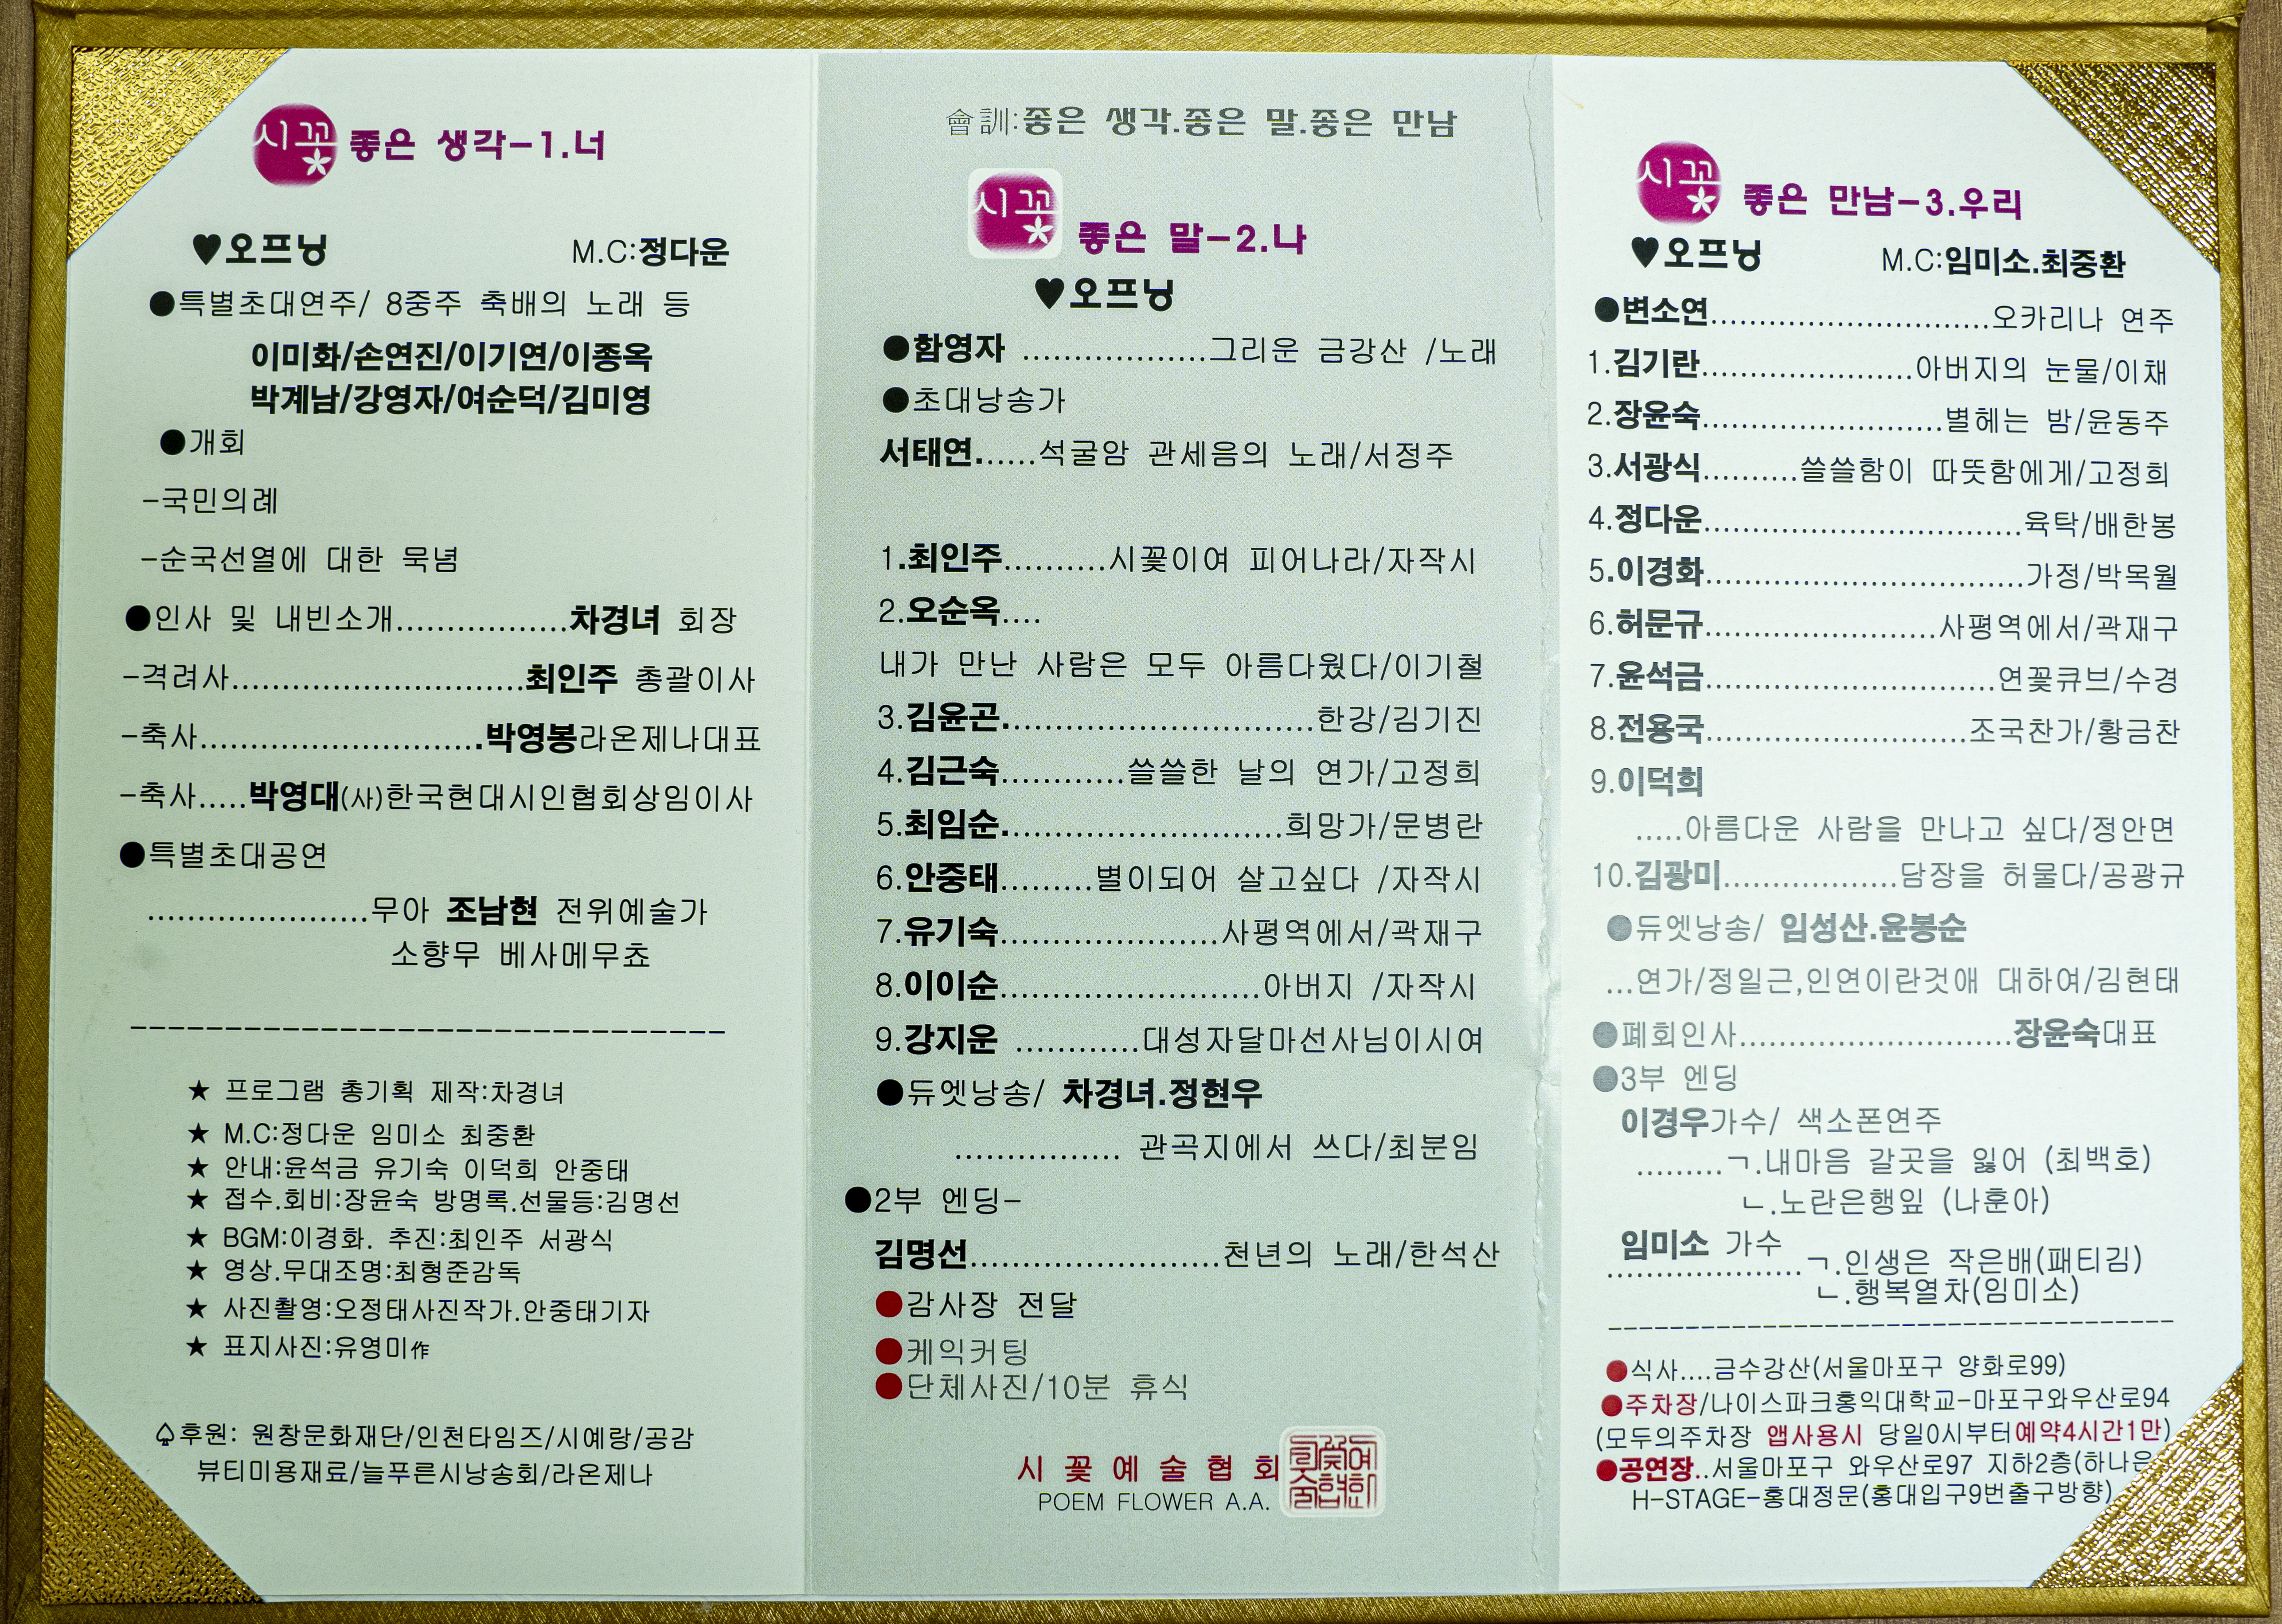 시꽃 좋은 생각-1.너
♥오프닝 M.C:정다운
●특별초대연주/ 8중주 축배의 노래 등
이미화/손연진/이기연/이종옥
박계남/강영자/여순덕/김미영
●개회
-국민의례
-순국선열에 대한 묵념
●인사 및 내빈소개.................차경녀 회장
-격려사.............................최인주 총괄이사
-축사............................박영봉라온제나대표
-축사.....박영대(사)한국현대시인협회상임이사
●특별초대공연
......................무아 조남현 전위예술가
소향무 베사메무쵸
--------------------------------
★ 프로그램 총기획 제작:차경녀
★ M.C:정다운 임미소 최중환
★ 안내:윤석금 유기숙 이덕희 안중태
★ 접수.회비:장윤숙 방명록.선물등:김명선
★ BGM:이경화. 추진:최인주 서광식
★ 영상.무대조명:최형준감독
★ 사진촬영:오정태사진작가.안중태기자
★ 표지사진:유영미作
♤후원: 원창문화재단/인천타임즈/시예랑/공감
뷰티미용재료/늘푸른시낭송회/라온제나
會訓:좋은 생각.좋은 말.좋은 만남
시꽃 좋은 말-2.나
♥오프닝
●함영자 ..................그리운 금강산 /노래
●초대낭송가
서태연......석굴암 관세음의 노래/서정주
1.최인주..........시꽃이여 피어나라/자작시
2.오순옥....
내가 만난 사람은 모두 아름다웠다/이기철
3.김윤곤...............................한강/김기진
4.김근숙............쓸쓸한 날의 연가/고정희
5.최임순............................희망가/문병란
6.안중태.........별이되어 살고싶다 /자작시
7.유기숙......................사평역에서/곽재구
8.이이순..........................아버지 /자작시
9.강지운 ............대성자달마선사님이시여
●듀엣낭송/ 차경녀.정현우
................ 관곡지에서 쓰다/최분임
●2부 엔딩-
김명선.........................천년의 노래/한석산
●감사장 전달
●케익커팅
●단체사진/10분 휴식
시 꽃 예 술 협 회
POEM FLOWER A.A.
시꽃 좋은 만남-3.우리
♥오프닝 M.C:임미소.최중환
●변소연.............................오카리나 연주
1.김기란......................아버지의 눈물/이채
2.장윤숙.........................별헤는 밤/윤동주
3.서광식..........쓸쓸함이 따뜻함에게/고정희
4.정다운.................................육탁/배한봉
5.이경화.................................가정/박목월
6.허문규........................사평역에서/곽재구
7.윤석금..............................연꽃큐브/수경
8.전용국...........................조국찬가/황금찬
9.이덕희
.....아름다운 사람을 만나고 싶다/정안면
10.김광미..................담장을 허물다/공광규
●듀엣낭송/ 임성산.윤봉순
...연가/정일근,인연이란것애 대하여/김현태
●폐회인사............................장윤숙대표
●3부 엔딩
이경우가수/ 색소폰연주
.........ㄱ.내마음 갈곳을 잃어 (최백호)
ㄴ.노란은행잎 (나훈아)
임미소 가수
....................ㄱ.인생은 작은배(패티김)
ㄴ.행복열차(임미소)
-----------------------------------
●식사....금수강산(서울마포구 양화로99)
●주차장/나이스파크홍익대학교-마포구와우산로94
(모두의주차장 앱사용시 당일0시부터예약4시간1만)
●공연장..서울마포구 와우산로97 지하2층(하나은
H-STAGE-홍대정문(홍대입구9번출구방향)